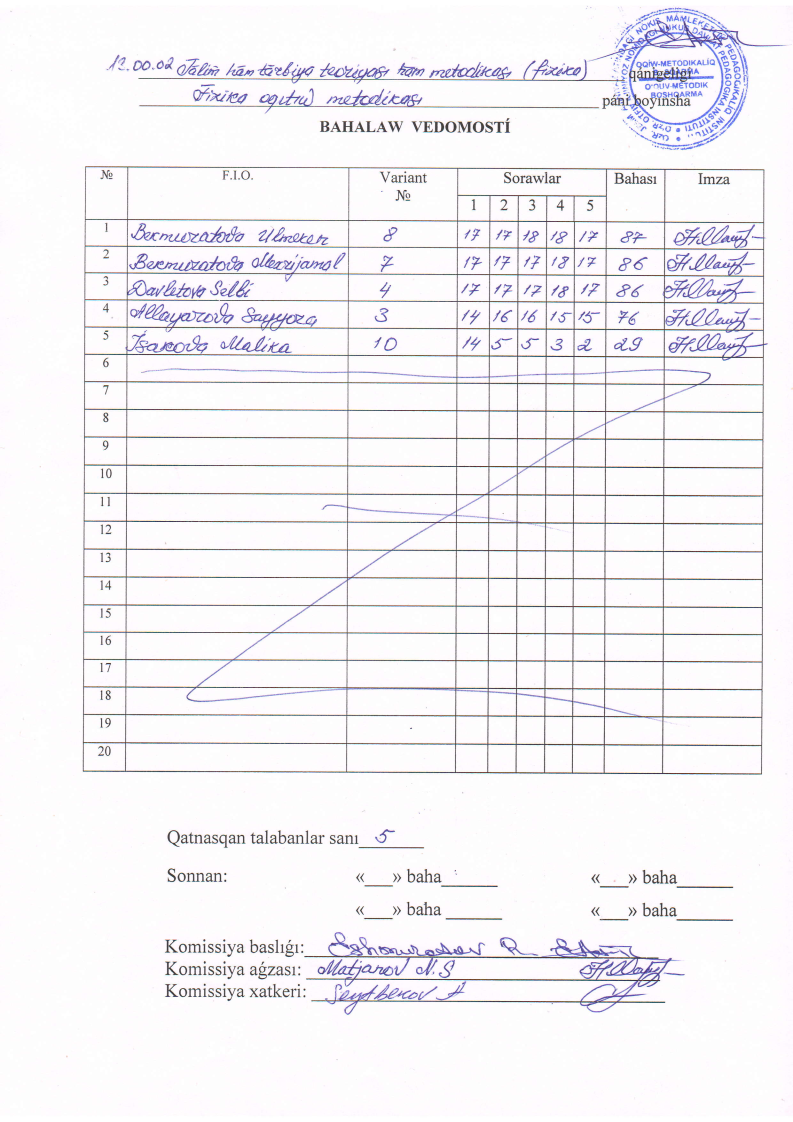 13.00.02 Talim hám tárbiya teoriyası hám metodikası (fizika) qánigeligi
Fizika oqıtıw metodikası páni boyınsha
QQIW-METODIKALÍQ
OQUV-METODIK
BOSHQARMA
BAHALAW VEDOMOSTÍ
№ F.I.O. Variant № Sorawlar Bahası Imza
1 2 3 4 5
1 Bekmuratova Ulmeken 8 17 17 18 18 17 87
2 Bekmuratova Mexrijamal 7 17 17 17 18 17 86
3 Davletova Selbi 4 17 17 17 18 17 86
4 Allayarova Sayyora 3 14 16 16 15 15 76
5 Isakova Malika 10 14 5 5 3 2 29
6
7
8
9
10
11
12
13
14
15
16
17
18
19
20
Qatnasqan talabanlar sanı 5
Sonnan: «___» baha______ «___» baha______
«___» baha ______ «___» baha______
Komissiya baslıǵı:
Komissiya aǵzası: Matjanov N.S
Komissiya xatkeri: Seytbekov A